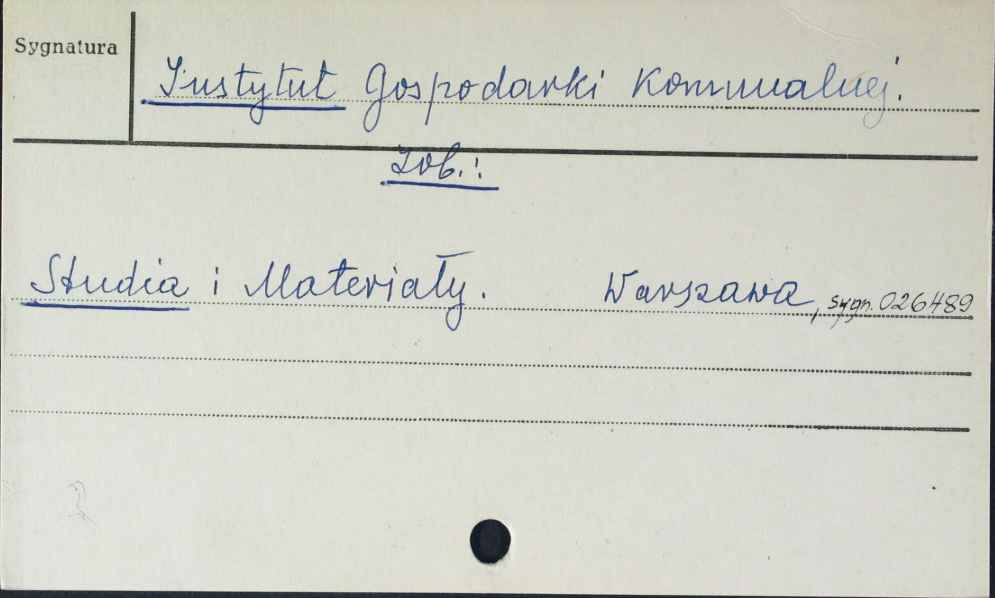 Sygnatura
Instytut Gospodarki Komunalnej.
Zob.:
Studia i Materiały. Warszawa, sygn. 026489